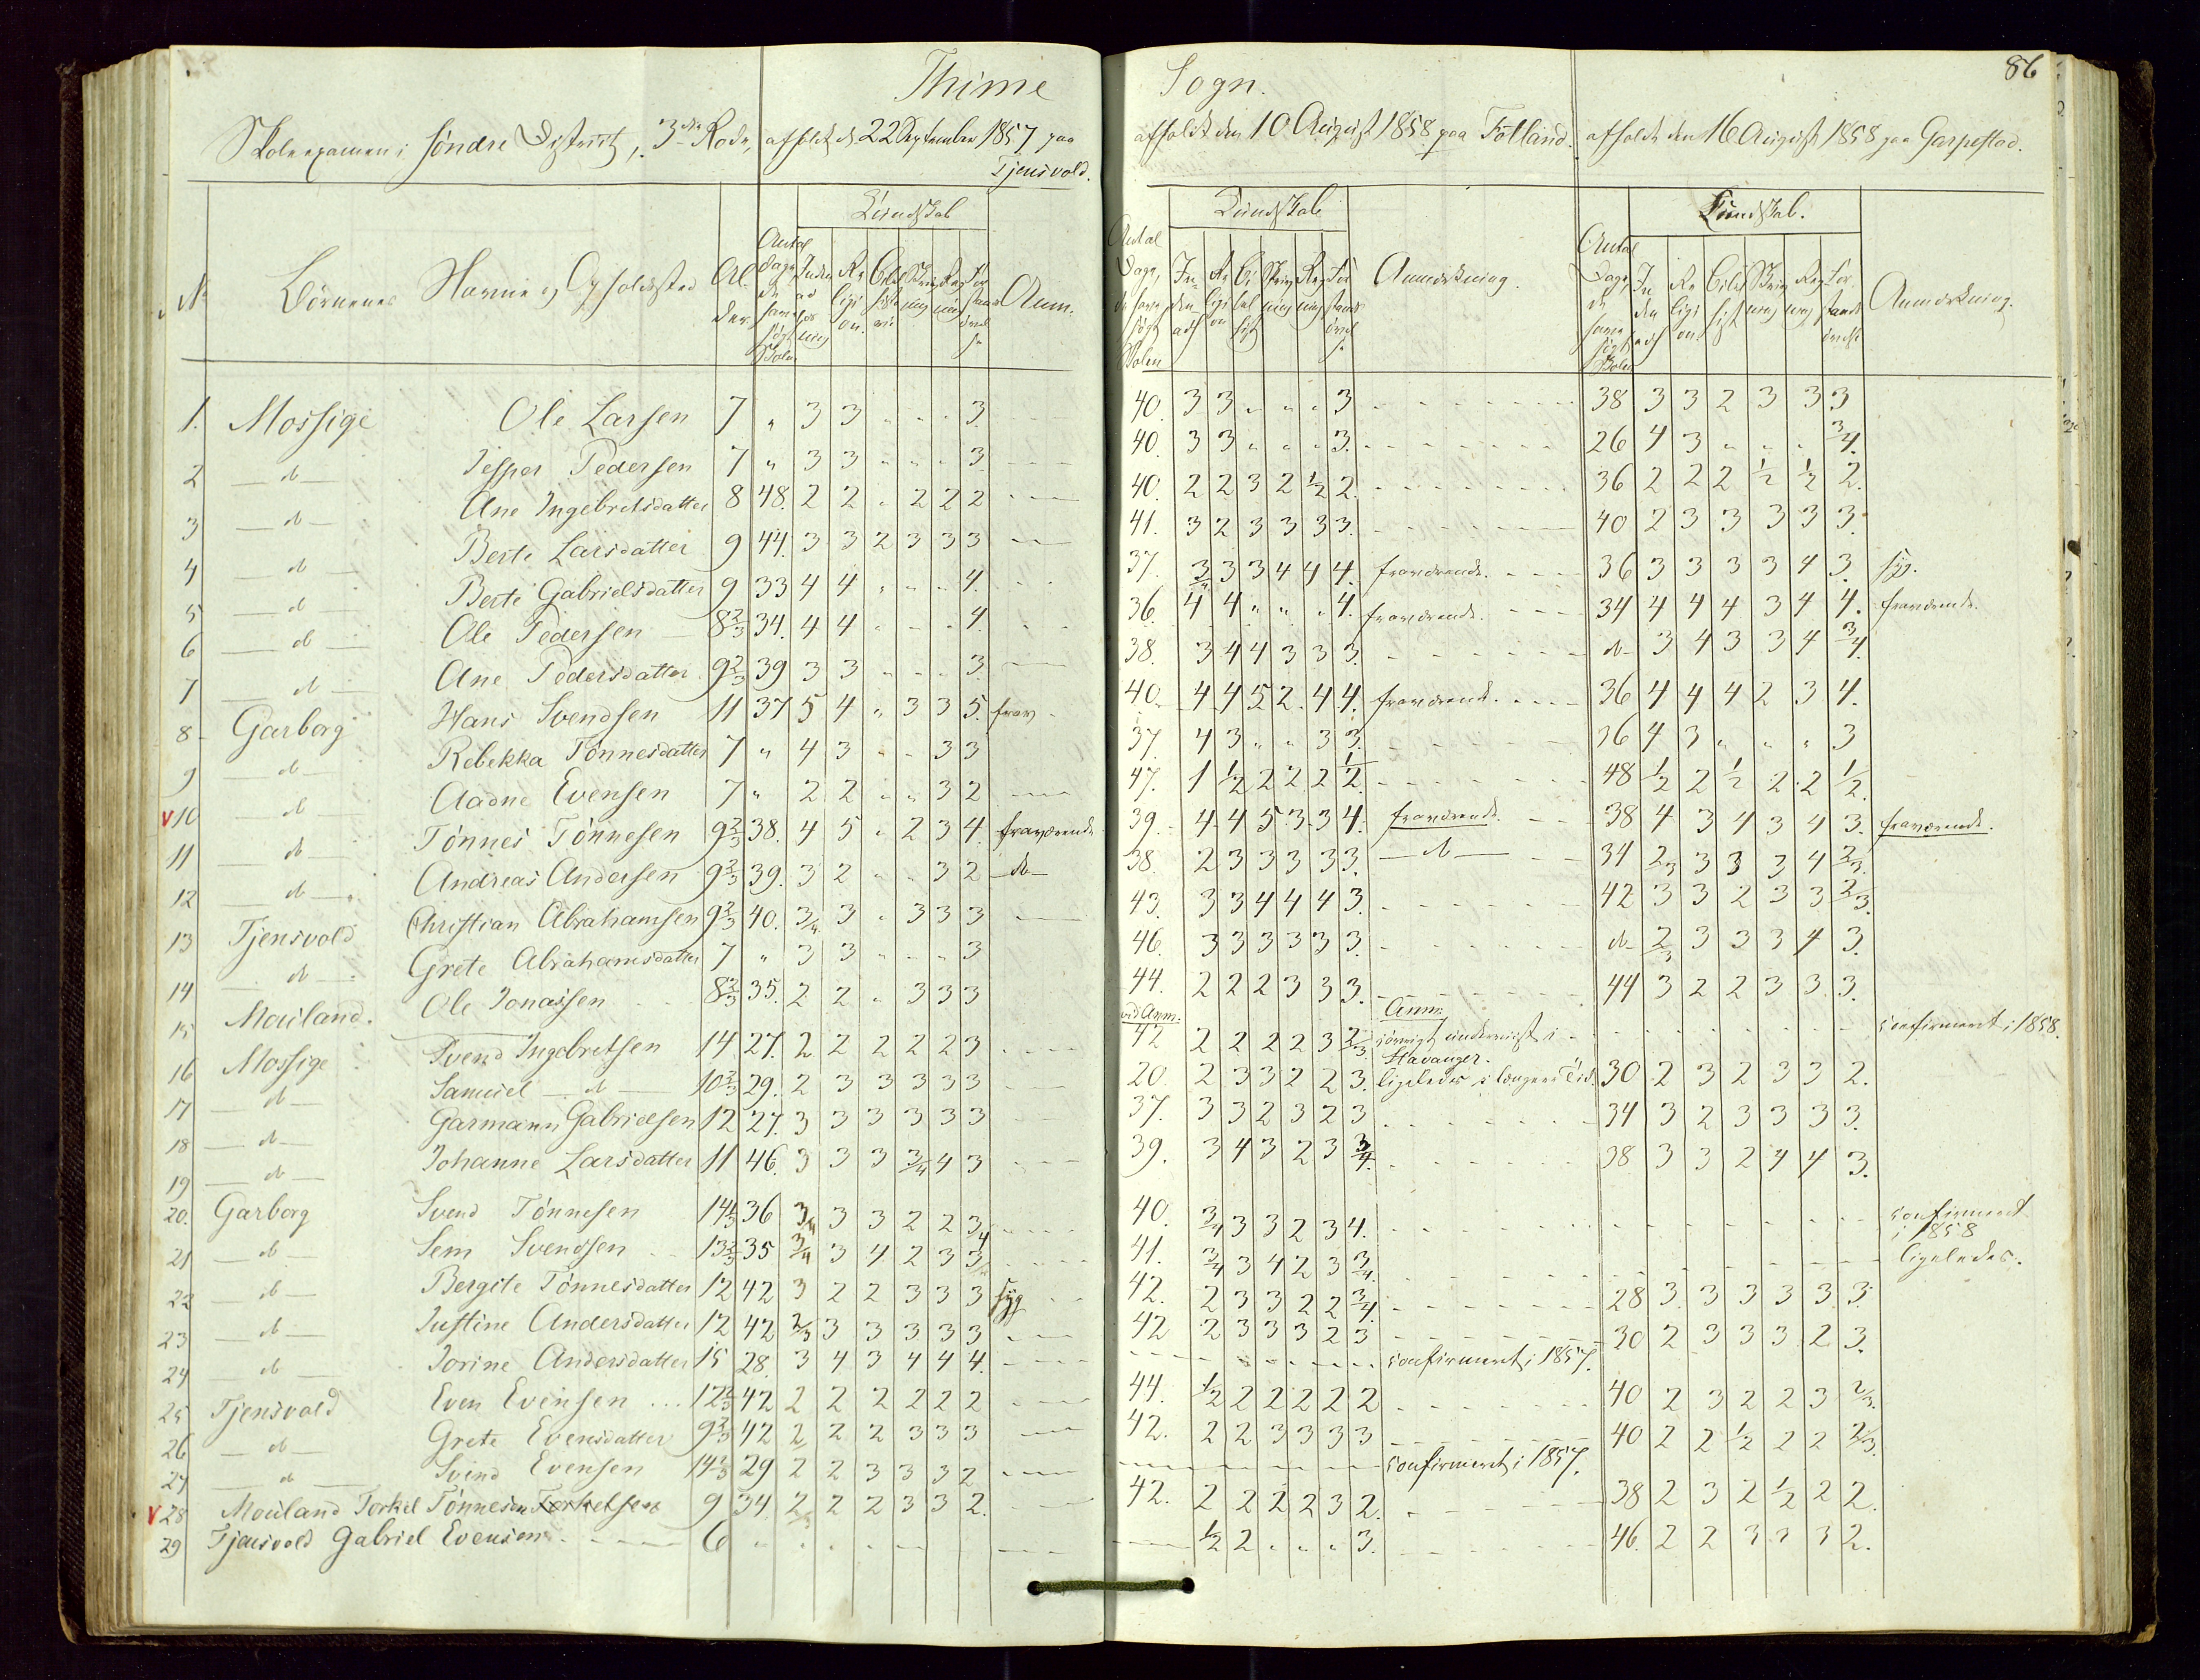 86
Thime Sogn.
Skoleexamen i søndre District, 3die Rode, afholdt d. 22 September 1857 paa Tjensvold.
afholdt den 10 August 1858 paa Fotland.
afholdt den 16 August 1858 paa Garpestad.
Kundskab Kundskab Kundskab.
No Børnenes Navne og Opholdssted Alder. Antal Dage, de have søgt Skolen Religion. Skrivning Regning Anm.
Antal Dage, de have søgt Skolen Religion Skrivning Regning Anmærkning.
Antal Dage de have søgt Skolen Religion Skrivning Regning Anmærkning.
1. Mossige Ole Larsen 7 " 3 3 " " " 3. 40. 3 3 " " " 3 38 3 3 2 3 3 3
2 — do — Jesper Pedersen 7 " 3 3 " " " 3. 40. 3 3 " " " 3. 26 4 3 " " " 3/4.
3 — do — Ane Ingebretsdatter 8 48. 2 2 " 2 2 2 40. 2 2 3 2 1/2 2. 36 2 2 2 1/2 1/2 2.
4 — do — Berte Larsdatter 9 44. 3 3 2 3 3 3 41. 3 2 3 3 3 3. 40 2 3 3 3 3 3.
5 — do — Berte Gabrielsdatter 9 33 4 4 " " " 4. 37. 3/4 3 3 4 4 4. fraværende. 36 3 3 3 3 4 3. syg.
6 — do — Ole Pedersen 8 2/3 34. 4 4 " " " 4. 36. 4 4 " " " 4. fraværende. 34 4 4 4 3 4 4. fraværende.
7 — do — Ane Pedersdatter 9 2/3 39 3 3 " " " 3. 38. 3 4 4 3 3 3. do 3 4 3 3 4 3/4.
8 Garborg Hans Svendsen 11 37 5 4 " 3 3 5. frav. 40. 4 4 5 2 4 4. fraværende. 36 4 4 4 2 3 4.
9 — do — Rebekka Tønnesdatter 7 " 4 3 " " 3 3 37. 4 3 " " 3 3. 36 4 3 " " " 3
V 10 — do — Aadne Evensen 7 " 2 2 " " 3 2 47. 1 1/2 2 2 2 1/2. 48 1/2 2 1/2 2 2 1/2.
11 — do — Tønnes Tønnesen 9 2/3 38. 4 5 " 2 3 4. fraværende 39. 4 4 5 3 3 4. fraværende. 38 4 3 4 3 4 3. fraværende.
12 — do — Andreas Andersen 9 2/3 39. 3 2 " " 3 2 — do — 38. 2 3 3 3 3 3. — do — 34 2/3 3 3 3 4 2/3.
13 Tjensvold Christian Abrahamsen 9 2/3 40. 3/4 3 " 3 3 3 43. 3 3 4 4 4 3. 42 3 3 2 3 3 2/3.
14 — do — Grete Abrahamsdatter 7 " 3 3 " " " 3 46. 3 3 3 3 3 3. do 2/3 3 3 3 4 3.
15 Mauland. Ole Jonassen 8 2/3 35. 2 2 " 3 3 3 44. 2 2 2 3 3 3. 44 3 2 2 3 3 3.
vid Anm. Anm:
16 Mossige Svend Ingebretsen 14 27. 2 2 2 2 2 3 42 2 2 2 2 3 2/3. forøvrigt underviist i Stavanger. confirmeret i 1858.
17 — do — Samuel — do — 10 2/3 29. 2 3 3 3 3 3 20. 2 3 3 2 2 3. ligeledes i længere Tid. 30 2 3 2 3 3 2.
18 — do — Garmann Gabrielsen 12 27. 3 3 3 3 3 3 37. 3 3 2 3 2 3 34 3 2 3 3 3 3.
19 — do — Johanne Larsdatter 11 46. 3 3 3 3/4 4 3 39. 3 4 3 2 3 3/4. 38 3 3 2 4 4 3.
20. Garborg Svend Tønnesen 14 1/3 36 3/4 3 3 2 2 3/4 40. 3/4 3 3 2 3 4. confirmeret i 1858
21 — do — Sem Svendsen 13 2/3 35 3/4 3 4 2 3 3/4 41. 3/4 3 4 2 3 3/4. ligeledes.
22 — do — Bergite Tønnesdatter 12 42 3 2 2 3 3 3 syg 42. 2 3 3 2 2 3/4. 28 3. 3 3 3 3. 3.
23 — do — Justine Andersdatter 12 42 2/3 3 3 3 3 3 42 2 3 3 3 2 3 30 2 3 3 3 2 3.
24 — do — Jorine Andersdatter 15 28. 3 4 3 4 4 4. confirmeret i 1857.
25 Tjensvold Even Evensen 12 2/3 42 2 2 2 2 2 2 44. 1/2 2 2 2 2 2 40 2 3 2 2 3 2/3.
26 — do — Grete Evensdatter 9 2/3 42 2 2 2 3 3 3 42. 2 2 3 3 3 3 40 2 2 1/2 2 2 2/3.
27 — do — Svend Evensen 14 2/3 29 2 2 3 3 3 2 confirmeret i 1857.
V 28 Mauland Torkel Tønnesen Torkelsen 9 34. 2/3 2 2 3 3 2. 42. 2 2 2 2 3 2. 38 2 3 2 1/2 2 2.
29 Tjensvold Gabriel Evensen 6 1/2 2 " " " 3. 46. 2 2 3 3 3 2.